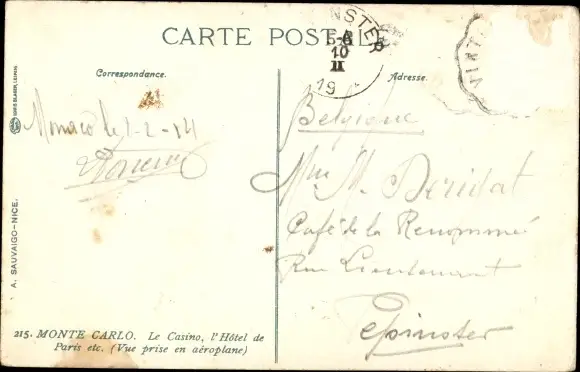 CARTE POSTALE
NSTER
5-6
10
II
19
VINT
Correspondance.
Adresse.
Monaco le 1-2-14
Belgique
M. Deridat
Café de la Renommée
Rue Lieutenant
Pepinster
A. SAUVAIGO-NICE.
215. MONTE CARLO. Le Casino, l'Hôtel de
Paris etc. (Vue prise en aéroplane)